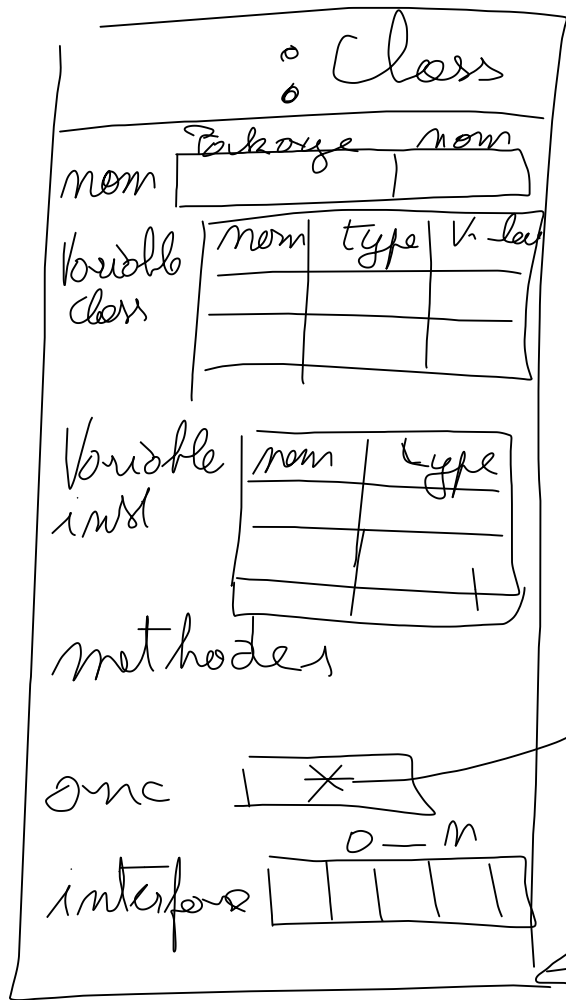 : Class
Package nom
nom
Variable class
nom type
Variable inst
nom type
methodes
anc *
0 — n
interface